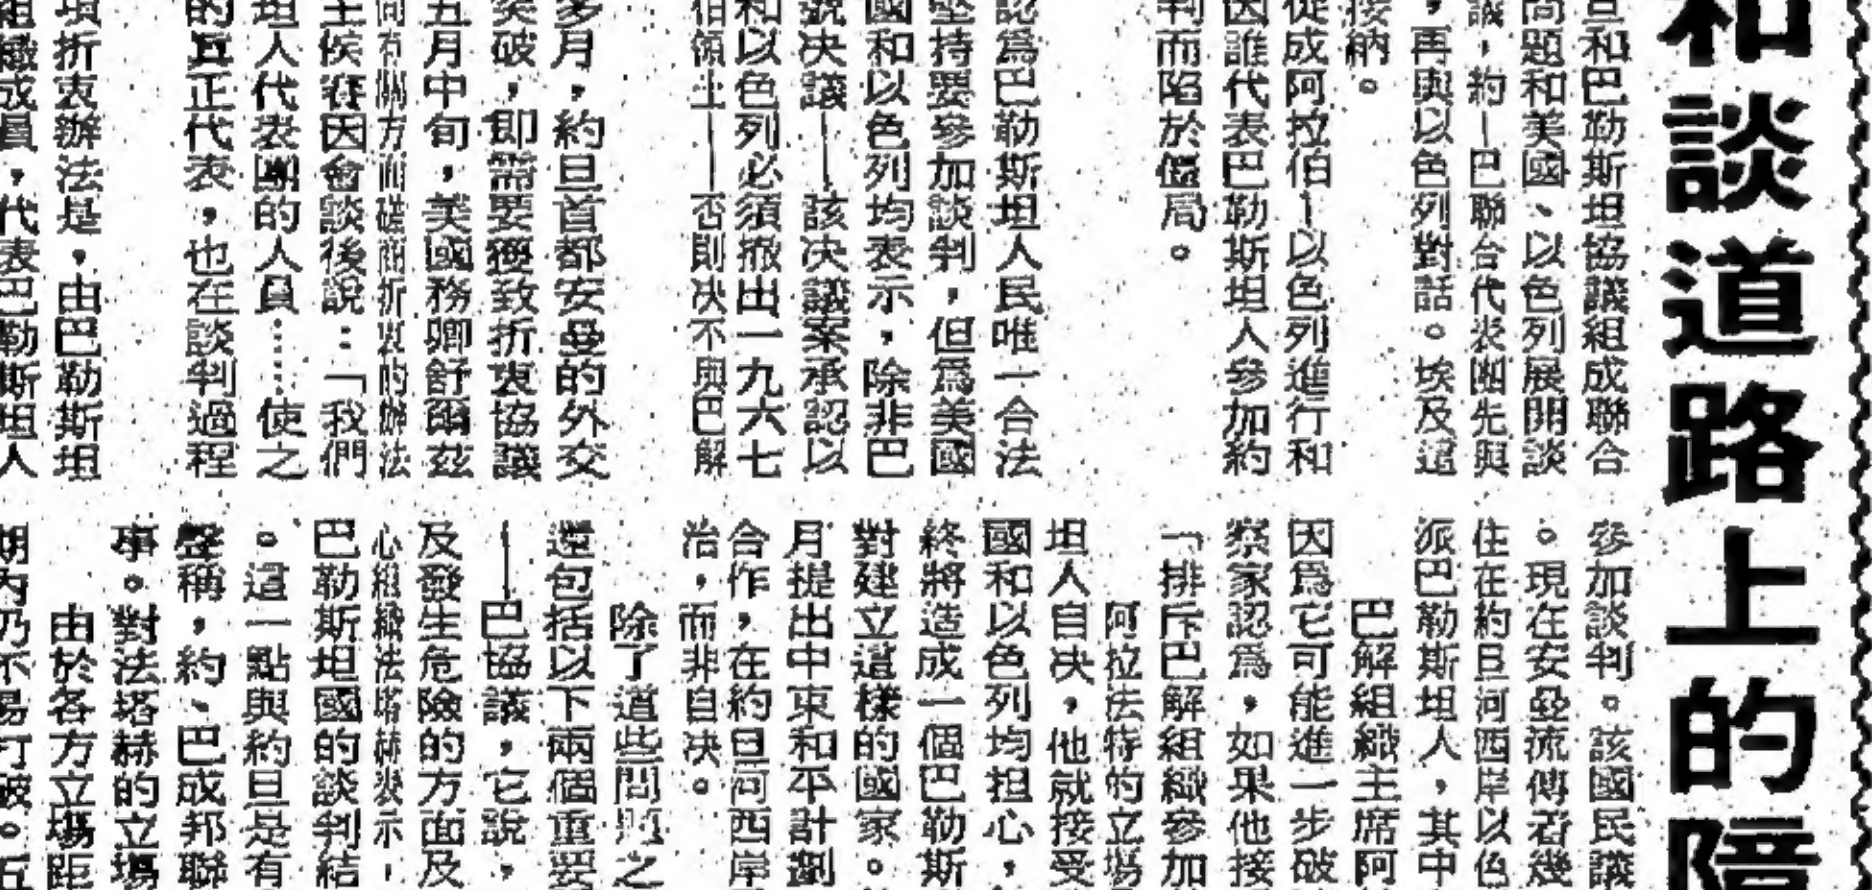 和談道路上的障
旦和巴勒斯坦協議組成聯合
問題和美國、以色列展開談
議，約—巴聯合代表團先與
，再與以色列對話。埃及還
接納。
從成阿拉伯—以色列進行和
因誰代表巴勒斯坦人參加約
判而陷於僵局。
認爲巴勒斯坦人民唯一合法
堅持要參加談判，但爲美國
國和以色列均表示，除非巴
號決議—該決議案承認以
和以色列必須撤出一九六七
伯領土—否則決不與巴解
多月，約旦首都安曼的外交
突破，即需要獲致折衷協議
五月中旬，美國務卿舒爾茲
間有關方面磋商折衷的辦法
主侯賽因會談後說：「我們
坦人代表團的人員……使之
的真正代表，也在談判過程
項折衷辦法是，由巴勒斯坦
組織成員，代表巴勒斯坦人
參加談判。該國民議
。現在安曼流傳者幾
住在約旦河西岸以色
派巴勒斯坦人，其中
巴解組織主席阿
因爲它可能進一步破
察家認爲，如果他接
「排斥巴解組織參加
阿拉法特的立場
坦人自決，他就接受
國和以色列均担心，
終將造成一個巴勒斯
對建立這樣的國家。
月提出中東和平計劃
合作，在約旦河西岸
治，而非自決。
除了道些問題之
還包括以下兩個重要
—巴協議，它說，
及發生危險的方面及
心組織法塔赫表示，
巴勒斯坦國的談判結
。這一點與約旦是有
聲稱，約、巴成邦聯
事。對法塔赫的立場
由於各方立場距
期內仍不易打破。五